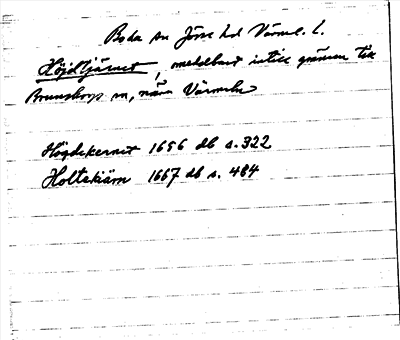 Boda sn Jösse hd Värml. l.
Höjdtjärnet, omedelbart intill gränsen till
Brunskogs sn, nära Värmeln
Högdekernet 1656 db s. 322
Holtekiärn 1667 db s. 484